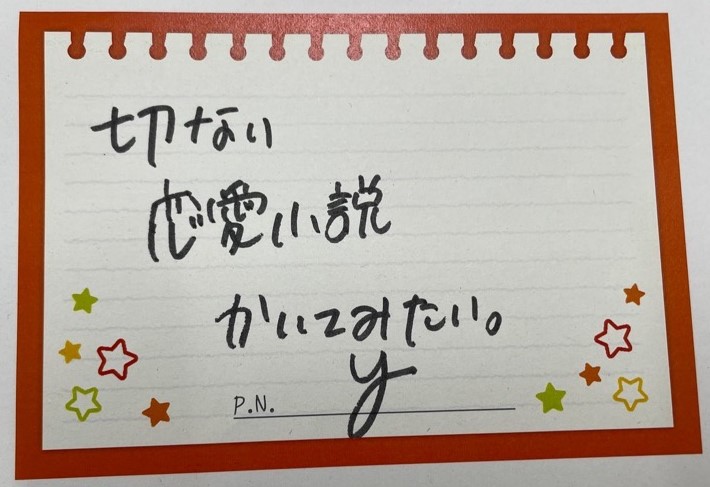 切ない
恋愛小説
かいてみたい。
P.N. y